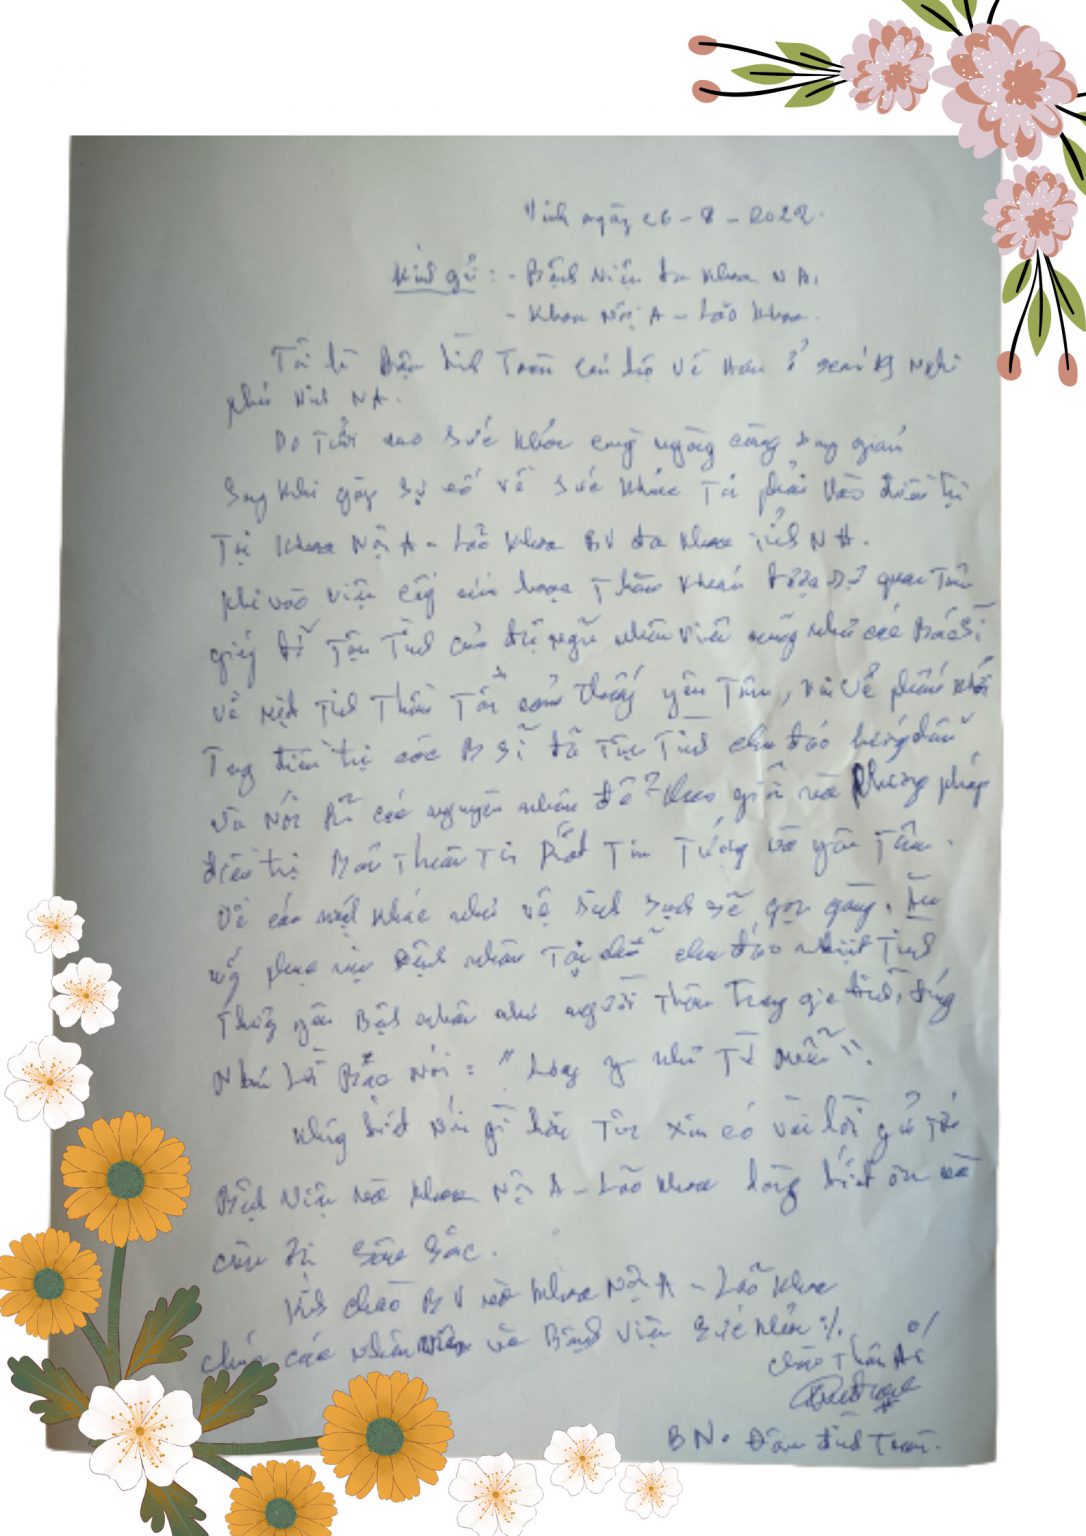 Vinh ngày 26-8-2022.
Kính gửi: - Bệnh Viện đa khoa NA.
- Khoa Nội A - Lão khoa.
Tôi là Đình Toàn về hưu ở
phố Vinh NA.
Do Tuổi cao sức khỏe càng ngày càng suy giảm
Sau khi gặp sự cố về sức khỏe Tôi phải vào điều trị
Tại Khoa Nội A - Lão khoa BV đa khoa Tỉnh NA.
Khi vào viện cấp cứu Thăm khám được sự quan Tâm
giúp đỡ Tận Tình của đội ngũ nhân viên cũng như các Bác Sĩ
về mặt Tinh Thần Tôi cảm thấy yên Tâm, về
Trong điều trị các B sĩ đã Tận Tình chu đáo hướng dẫn
và nói rõ các nguyên nhân để theo giõi và phương pháp
điều trị Bản Thân Tôi rất Tin Tưởng và yên Tâm.
Về các mặt khác như vệ sinh sạch sẽ gọn gàng. Ăn
uống phục vụ Bệnh nhân Tại chỗ chu đáo nhiệt Tình
Thương yêu Bệnh nhân như người Thân Trong gia đình, đúng
Như Lời Bác Nói: "Lương y như Từ mẫu".
Không biết nói gì hơn Tôi xin có vài lời gửi Tới
Bệnh Viện và khoa Nội A - Lão khoa lòng biết ơn và
cảm ơn sâu sắc.
Kính chào BV và khoa Nội A - Lão khoa
chúc các nhân viên và Bệnh viện sức khỏe
Chào Thân Ái
BN. Đình Toàn.